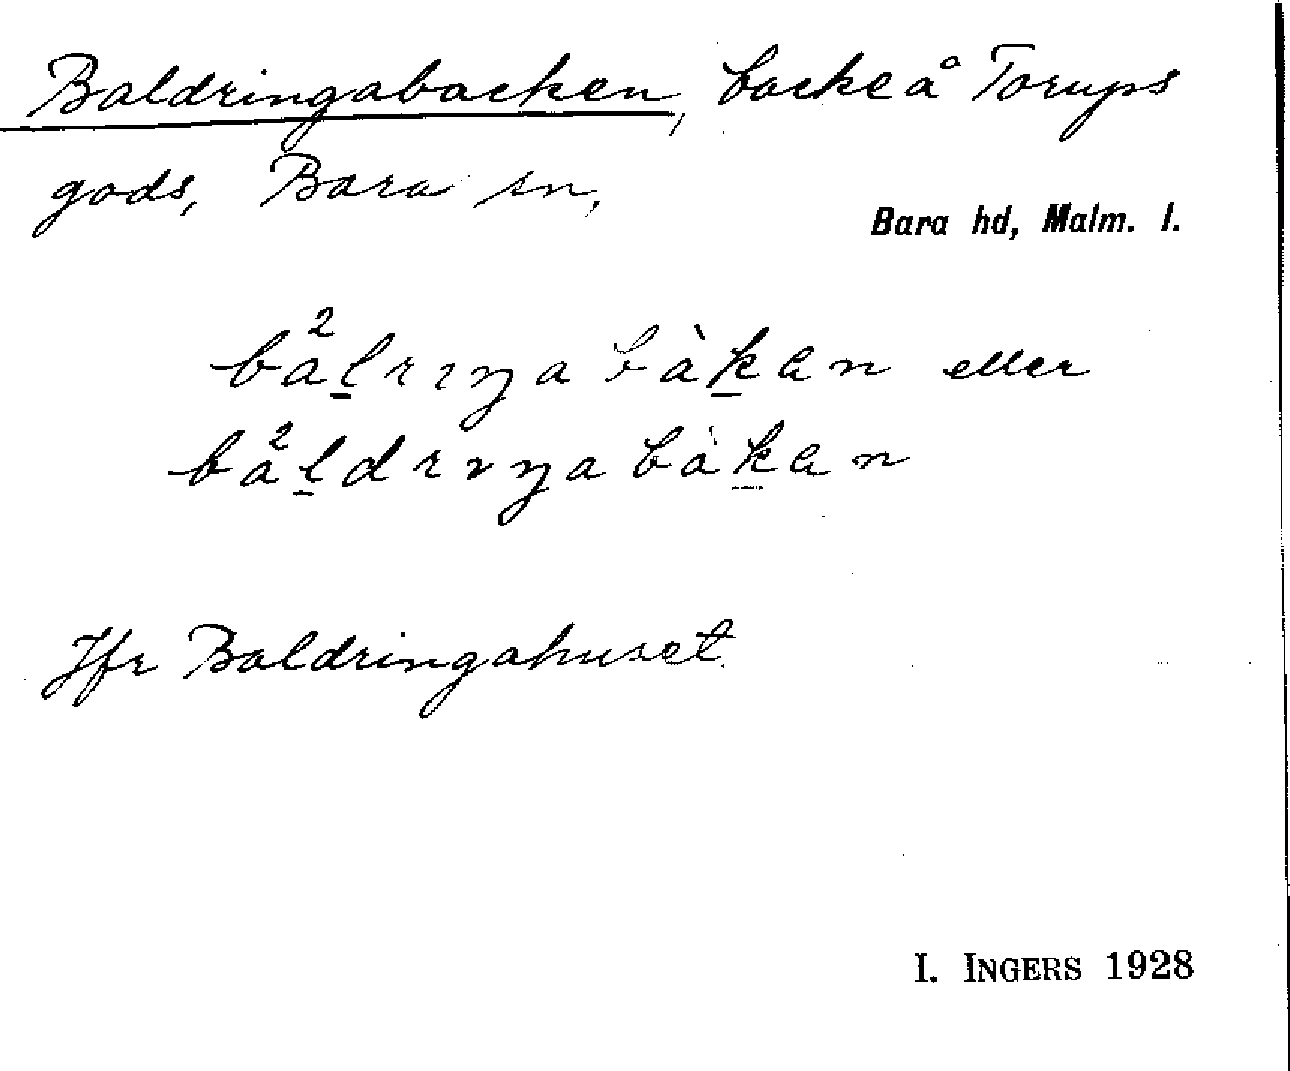 Baldringabacken, backe å Torups
gods, Bara sn,
Bara hd, Malm. l.
bå²l̲rɪŋabàk̲an eller
bå²l̲drɪŋabàk̲an
Jfr Baldringahuset.
I. INGERS 1928